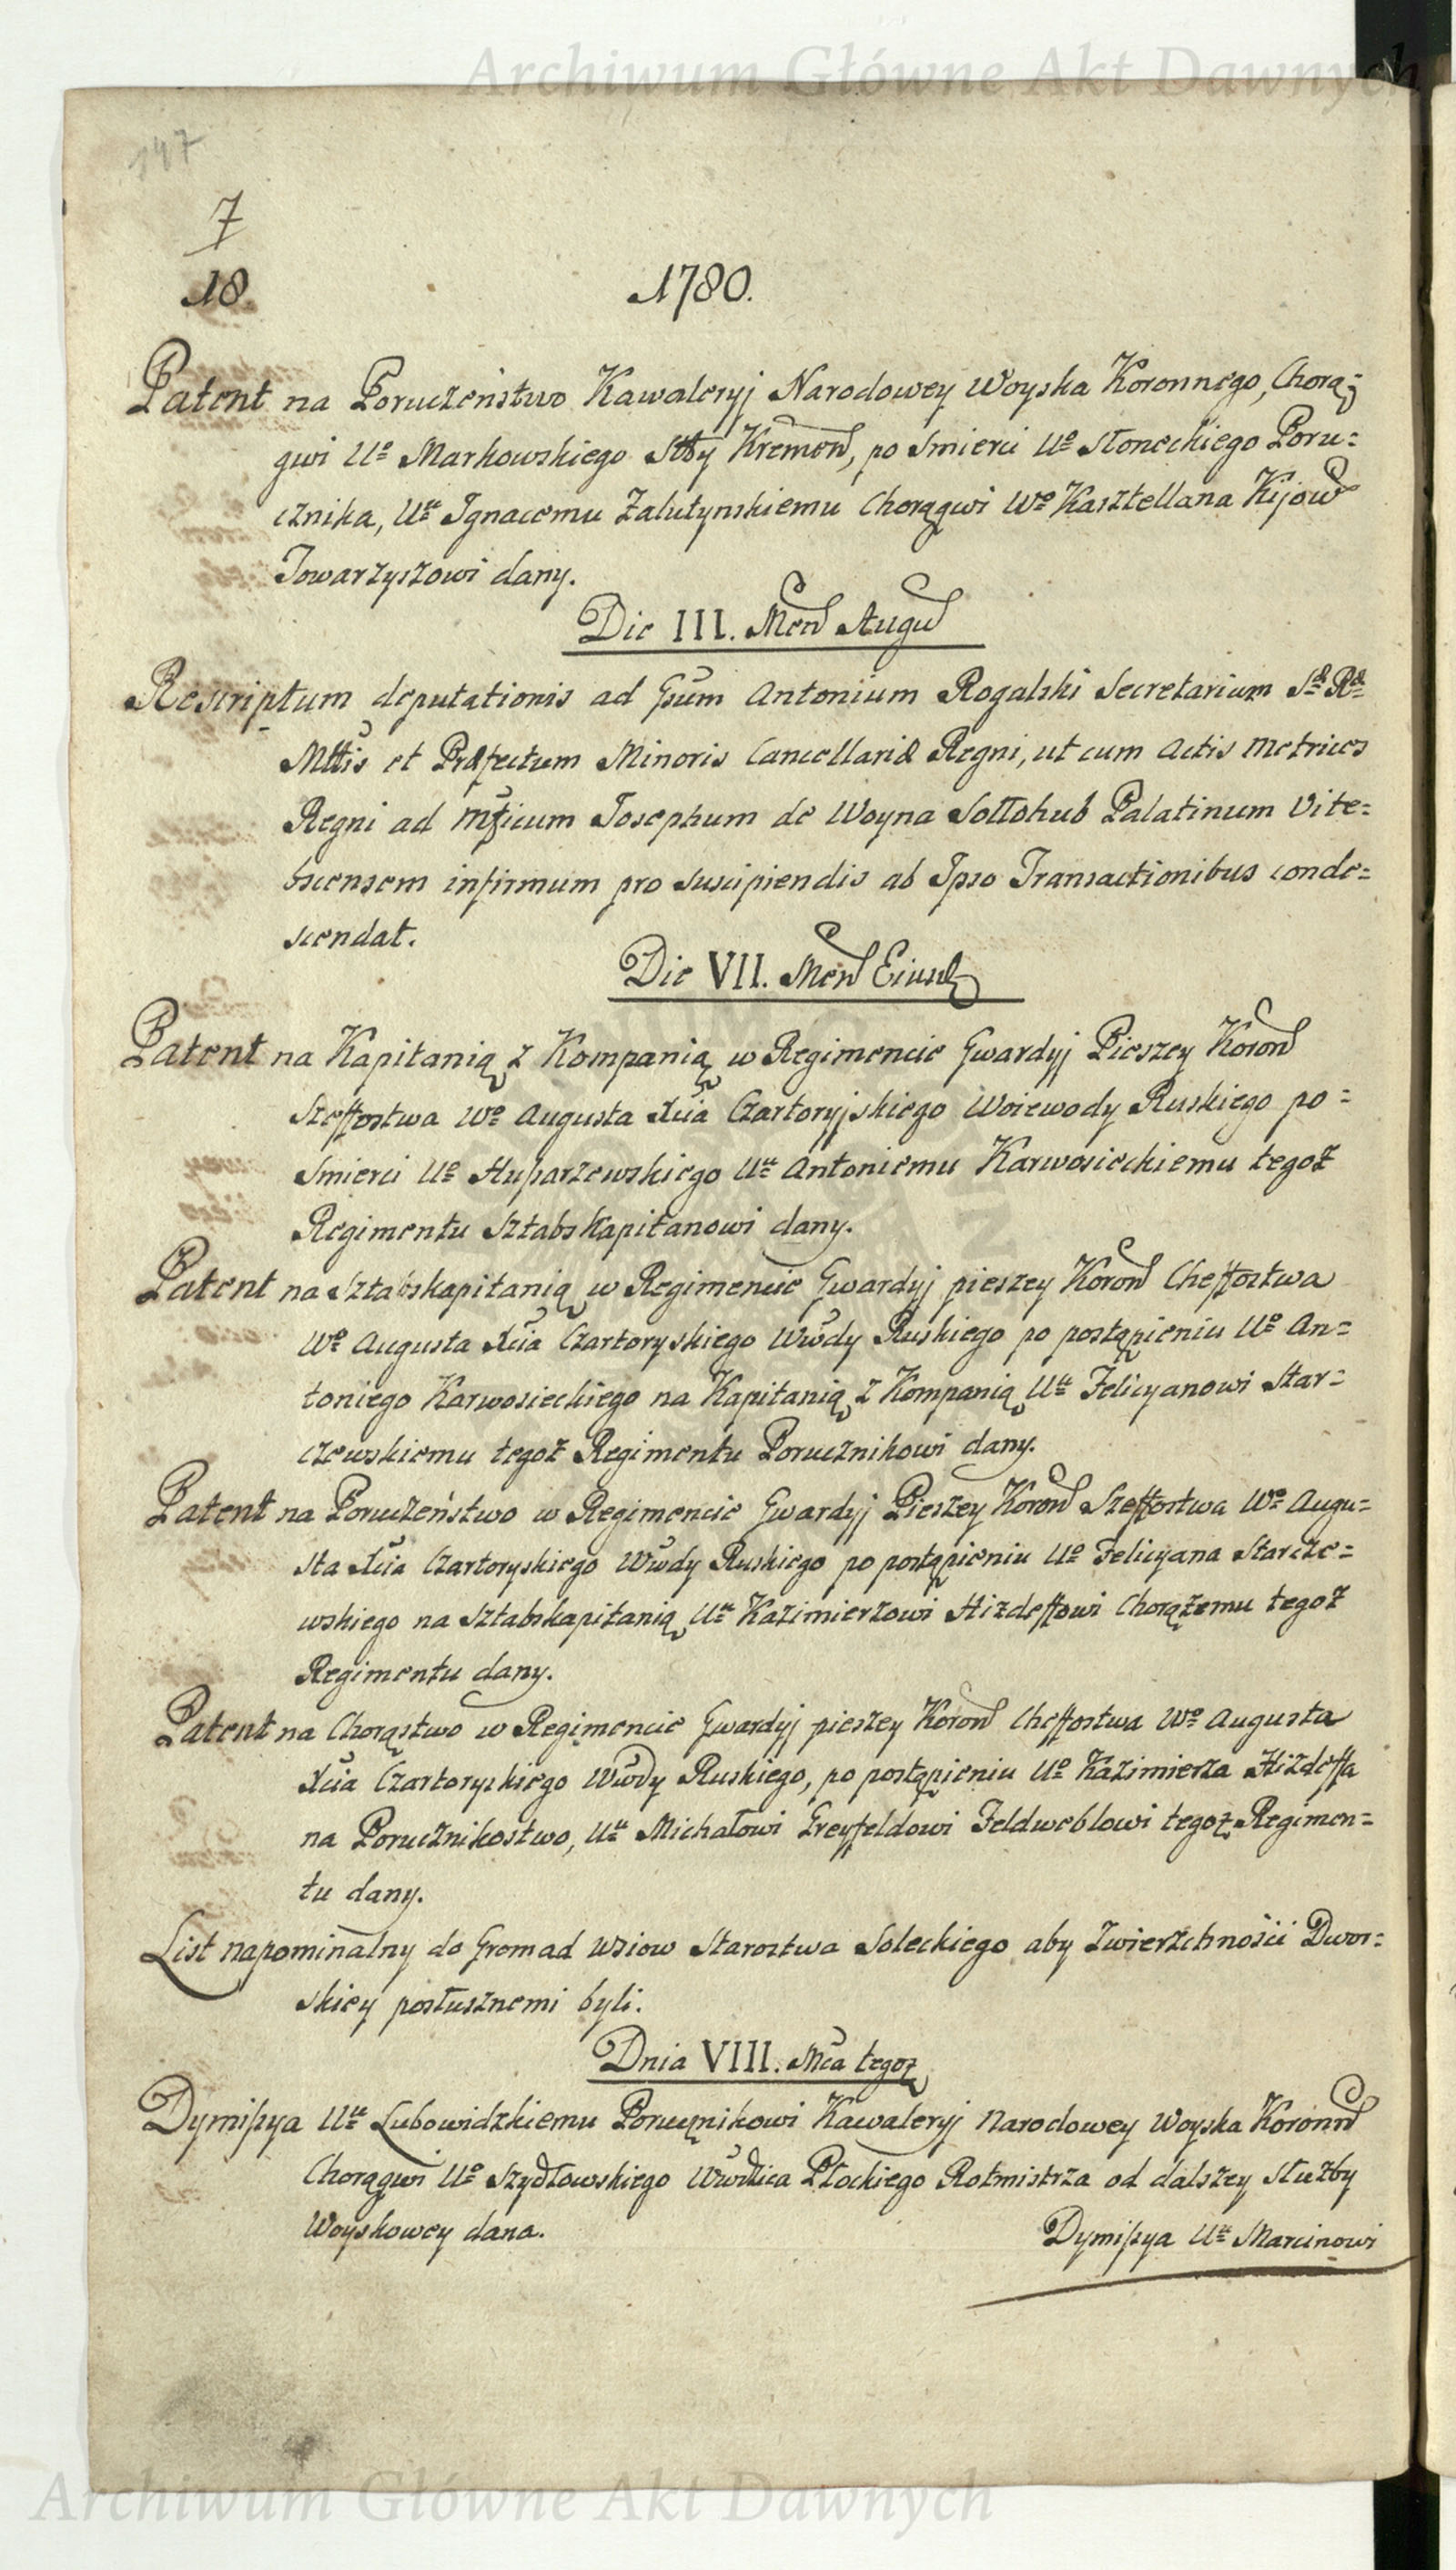 Archiwum Główne Akt Dawnych
147
7
18.
1780.
Patent na Poruczeństwo Kawaleryj Narodowey Woyska Koronnego, Chorą=
gwi Uo Markowskiego Stty Kremen, po Smierci Uo Słoneckiego Poru=
cznika, Uu Ignacemu Załutynskiemu Chorągwi Wo Kasztellana Kijow
Towarzyszowi dany.
Die III. Men Augu
Rescriptum deputationis ad Gsum Antonium Rogalski Secretarium Sæ Ræ
Mttis et Præfectum Minoris Cancellariæ Regni, ut cum Actis Metrices
Regni ad Mficum Josephum de Woyna Sołłohub Palatinum Vite=
bscensem infirmum pro suscipiendis ab Ipso Transactionibus conde=
scendat.
Die VII. Men Eiusd
Patent na Kapitanią z Kompanią w Regimencie Gwardyj Pieszey Koron
Szeffostwa Wo Augusta Xcia Czartoryjskiego Woiewody Ruskiego po=
Smierci Uo Huparzewskiego Uu Antoniemu Karwosieckiemu tegoż
Regimentu Sztabskapitanowi dany.
Patent na Sztabskapitanią w Regimencie Gwardyj pieszey Koron Cheffostwa
Wo Augusta Xcia Czartoryskiego Wwdy Ruskiego po postąpieniu Uo An=
toniego Karwosieckiego na Kapitanią z Kompanią Uu Felicyanowi Star=
czewskiemu tegoż Regimentu Porucznikowi dany.
Patent na Poruczeństwo w Regimencie Gwardyj Pieszey Koron Szeffostwa Wo Augu=
sta Xcia Czartoryskiego Wwdy Ruskiego po postąpieniu Uo Felicyana Starcze=
wskiego na Sztabskapitanią Uu Kazimierzowi Hizdeffowi Chorążemu tegoż
Regimentu dany.
Patent na Chorąstwo w Regimencie Gwardyj pieszey Koron Cheffostwa Wo Augusta
Xcia Czartoryskiego Wwdy Ruskiego, po postąpieniu Uo Kazimierza Hizdeffa
na Porucznikostwo, Uu Michałowi Greyffeldowi Feldweblowi tegoż Regimen=
tu dany.
List napominalny do Gromad wsiow Starostwa Soleckiego aby Zwierzchności Dwor=
skiey posłusznemi byli.
Dnia VIII. Mca tegoż
Dymissya Uu Lubowidzkiemu Porucznikowi Kawaleryj Narodowey Woyska Koronn
Chorągwi Uo Szydłowskiego Wwdzica Płockiego Rotmistrza od dalszey służby
Woyskowey dana.
Dymissya Uu Marcinowi
Archiwum Główne Akt Dawnych